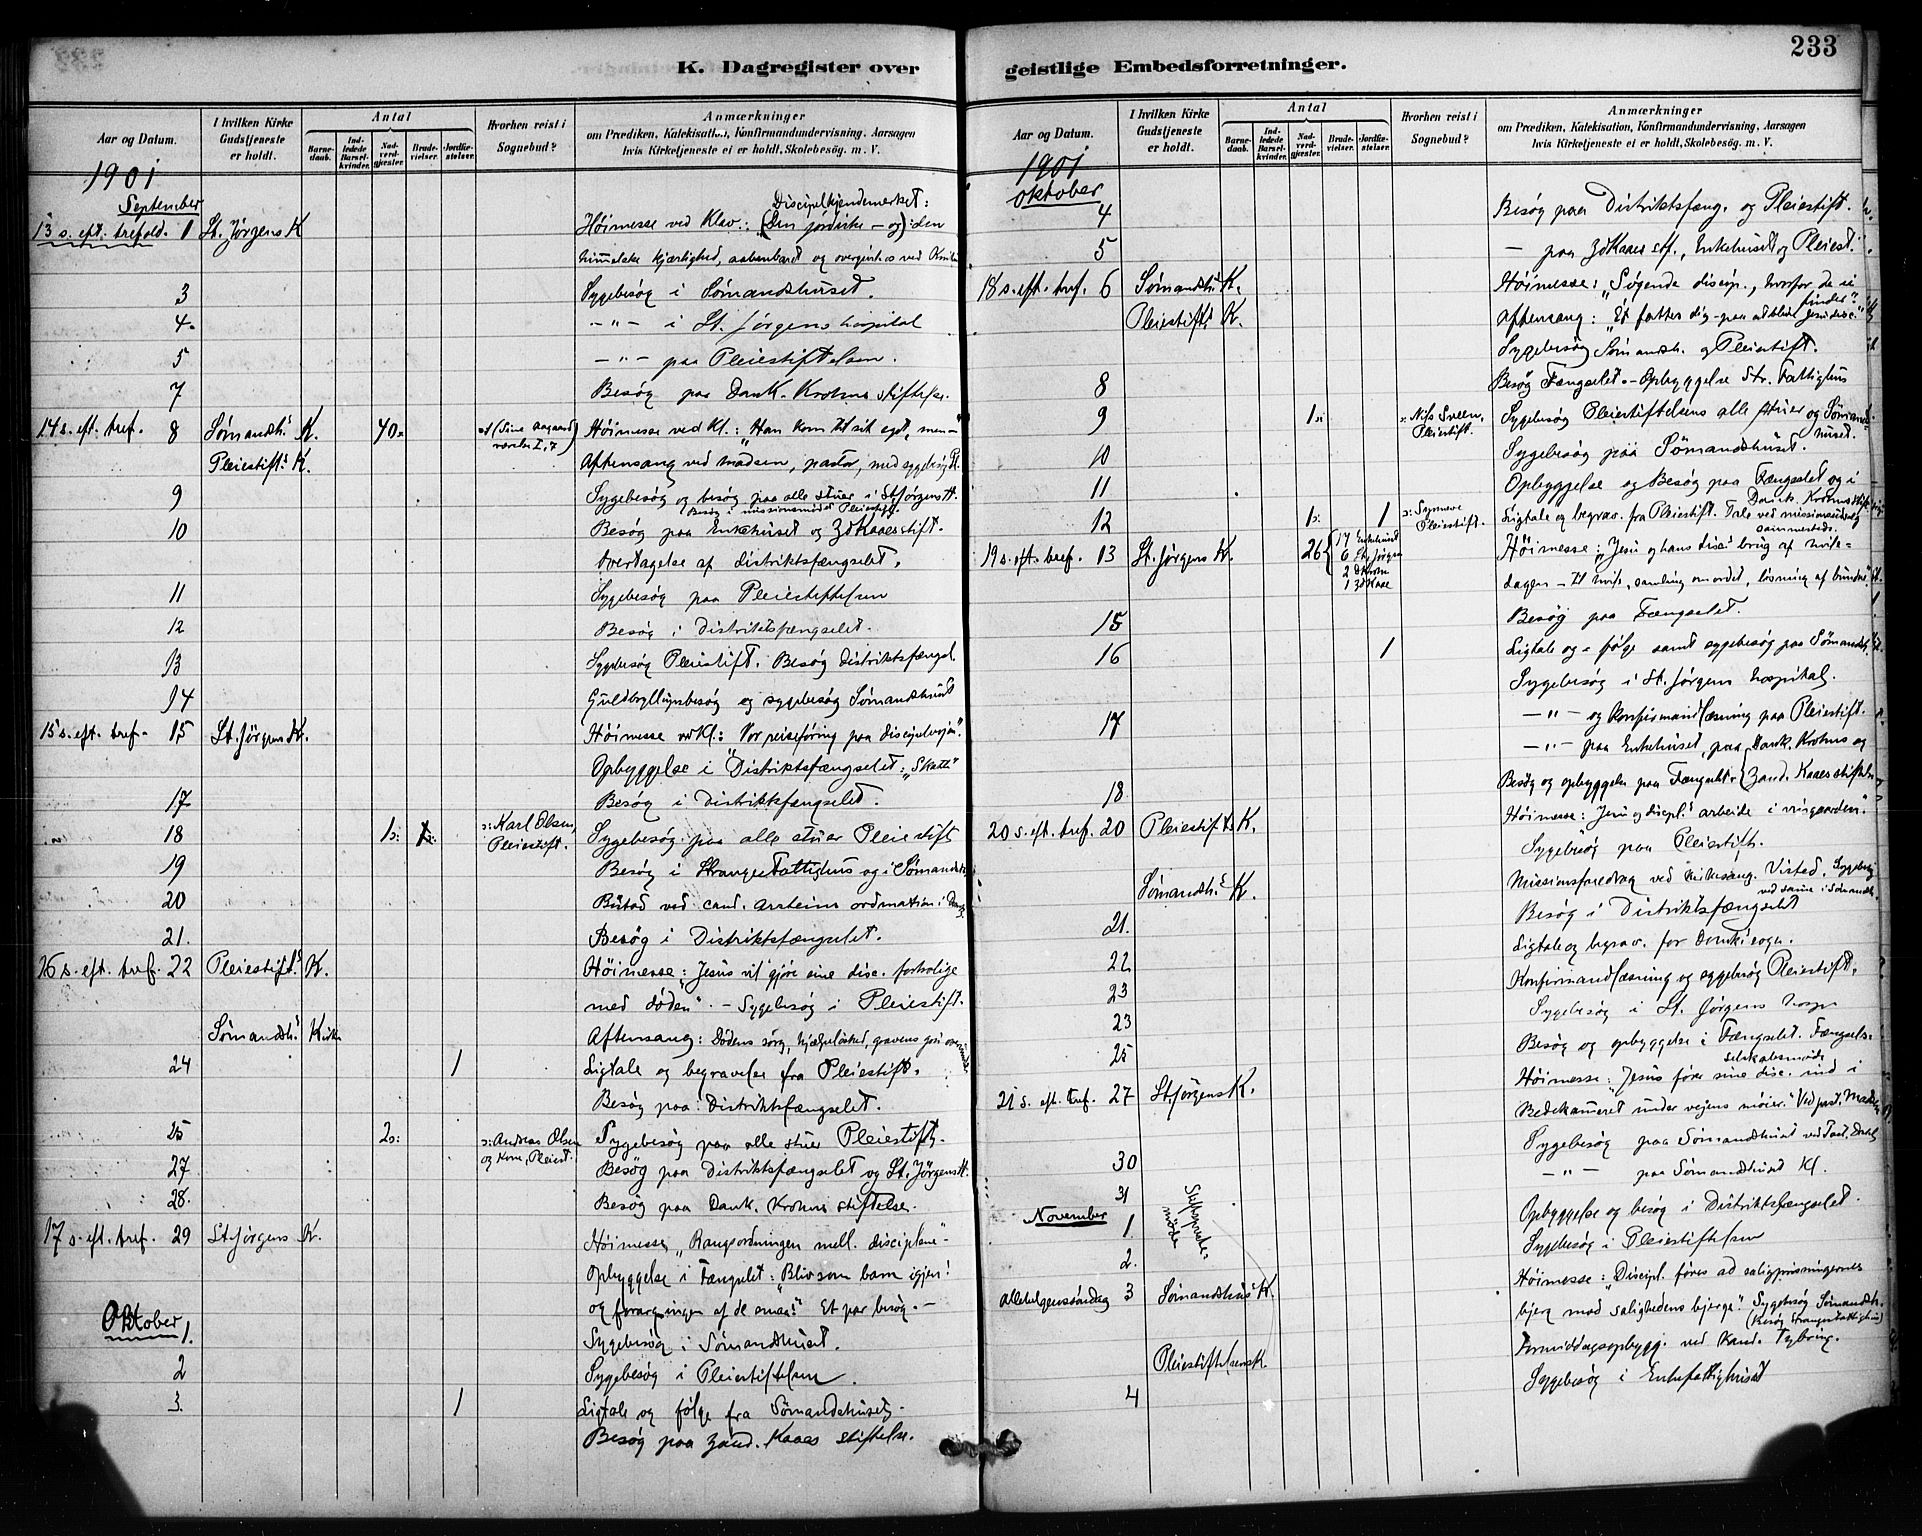 233
K. Dagregister over
Aar og Datum.
I hvilken Kirke Gudstjeneste er holdt.
Antal
Barnedaab.
Indledede Barselkvinder.
Nadverdgjester.
Brudevielser.
Jordfæstelser.
Hvorhen reist i Sognebud?
Anmærkninger
om Prædiken, Katekisation, Konfirmandundervisning, Aarsagen
hvis Kirketjeneste ei er holdt, Skolebesøg. m. V.
1901
September
Discipelkjendemerket:
13 s. eft. trefold. 1 St. Jørgens K Høimesse ved Klav.: (Den jordiske – og): den
himmelske kjærlighed, aabenbaret og overgivelse ved
3 Sygebesøg i Sømandshuset.
4. – " – i St. Jørgens hospital
5 – " – paa Pleiestiftelsen.
7 Besøg paa Dank. Krohns stiftelse.
14 s. eft. tref. 8 Sømandsh.s K. 40 Høimesse ved Kl.: "Han kom til sit eget, men–"
Pleiestift.s K. Aftensang ved Madsen, pastor, med sygebesøg
9 Sygebesøg og besøg paa alle stuer i St Jørgens H.
Besøg i missionsmødet Pleiestift.
10 Besøg paa Enkehuset og Zd Kaaes stift.
Overtagelse af distriktsfængselet.
11 Sygebesøg paa Pleiestiftelsen
12 Besøg i Distriktsfængselet.
13 Sygebesøg Pleiestift. Besøg distriktsfængsl.
14 Guldbryllupsbesøg og sygebesøg Sømandshuset
15 s. eft. tref. 15 St. Jørgens K. Høimesse ved Kl.: "Vor reiseføring paa discipelveien".
Opbyggelse i Distriktsfængselet: "Skatte"
17 Besøg i Distriktsfængselet.
18 1 Karl Olsen, Pleiestift. Sygebesøg paa alle stuer Pleiestift
19 Besøg i Stranges Fattighus og i Sømandsh.
20 Bistod ved cand. ordination i
21. Besøg i Distriktsfængselet.
16 s. eft. tref. 22 Pleiestift.s K. Høimesse: "Jesus vil gjøre sine disc. fortrolige
med døden". – Sygebesøg i Pleiestift.
Sømandsh.s Kirke Aftensang: Dødens sorg, hjælpeløshed, gravens
24 1 Ligtale og begravelse fra Pleiestift.
Besøg paa Distriktsfængselet.
25 2 Andreas Olsen og Kone, Pleiest. Sygebesøg paa alle stuer Pleiestift.
27 Besøg paa Distriktsfængselet og St. Jørgens H.
28. Besøg paa Dank. Krohns stiftelse.
17 s. eft. tref. 29 St Jørgens K. Høimesse "Rangsordningen mell. disciplene"
Opbyggelse i Fængselet: "Bliv som barn igjen!
og forargingen af de smaa!" Et par besøg. –
Oktober
1. Sygebesøg i Sømandshuset.
2 Sygebesøg i Pleiestiftelsen.
3. 1 Ligtale og følge fra Sømandshuset.
Besøg paa Zand. Kaaes Stiftelse.
geistlige Embedsforretninger.
Aar og Datum.
I hvilken Kirke Gudstjeneste er holdt.
Antal
Barnedaab.
Indledede Barselkvinder.
Nadverdgjester.
Brudevielser.
Jordfæstelser.
Hvorhen reist i Sognebud?
Anmærkninger
om Prædiken, Katekisation, Konfirmandundervisning, Aarsagen
hvis Kirketjeneste ei er holdt, Skolebesøg. m. V.
1901
Oktober
4 Besøg paa Distriktsfæng. og Pleiestift.
5 – paa Zd Kaaes st., Enkehuset og Pleiest.
18 s. eft. tref. 6 Sømandsh.s K. Høimesse: "Søgende discip., hvorfor de ei
finder".
Pleiestift.s K. Aftensang: "Et fattes dig – paa at blive Jesu disc."
Sygebesøg Sømandsh. og Pleiestift.
8 Besøg Fængselet. – Opbyggelse Str. Fattighus
9 1 Nils Sveen, Pleiestift. Sygebesøg Pleiestiftelsens alle stuer og Sømandshuset.
10 Sygebesøg paa Sømandshuset.
11 Opbyggelse og Besøg paa Fængselet og i
Dank. Krohns stift.
12 1 1 Pleiestift. Ligtale og begrav. fra Pleiestift. Tale ved missions
19 s. eft. tref. 13 St. Jørgens K. 26 { 17 Enkehuset 6 St. Jørgen 2 d Krohn 1 Zd Kaae Høimesse: "Jesu og hans disc.s brug af hviledagen
– til hvile, samling om ordet, løsning af bundne"
15 Besøg paa Fængselet.
16 1 Ligtale og – følge samt sygebesøg paa Sømandsh.
Sygebesøg i St. Jørgens hospital.
17 – " – og Konfirmandlæsning paa Pleiestift.
– " – paa Enkehuset, paa Dank. Krohns og
18 Besøg og opbyggelse paa Fængselet. Zand. Kaaes stiftelse
20 s. eft. tref. 20 Pleiestift.s K. Høimesse: "Jesu og discipl.s arbeide i vingaarden".
Sygebesøg paa Pleiestift.
Sømandsh.s K. Missionsforedrag ved Visted. Sygebesøg
ved samme i Sømandsh.
21. Besøg i Distriktsfængselet
22 Ligtale og begrav. for Domkisogn.
23 Konfirmandlæsning og sygebesøg Pleiestift.
23 Sygebesøg i St. Jørgens hosp.
25 Besøg og opbyggelse i Fængselet. Fængselsselskabsmøde
21 s. eft. tref. 27 St Jørgens K. Høimesse: "Jesus fører sine disc. ind i
Bedekameret under veiens møier". Ved past. Madsen
Sygebesøg paa Sømandshuset ved
30 – " – paa Sømandshuset Kl.
31 Opbyggelse og besøg i Distriktsfængselet.
November
1. Sygebesøg i Pleiestiftelsen
2.
Allehelgenssøndag 3 Sømandshus K. Høimesse: "Discipl. føres ad saligprisningernes
bjerg mod salighedens bjerge". Sygebesøg Sømandsh.
(Besøg Stranges fattighus)
Pleiestiftelsens K. Formiddagsopbygg. ved Kand. Tybring.
4 Sygebesøg i Enkefattighuset